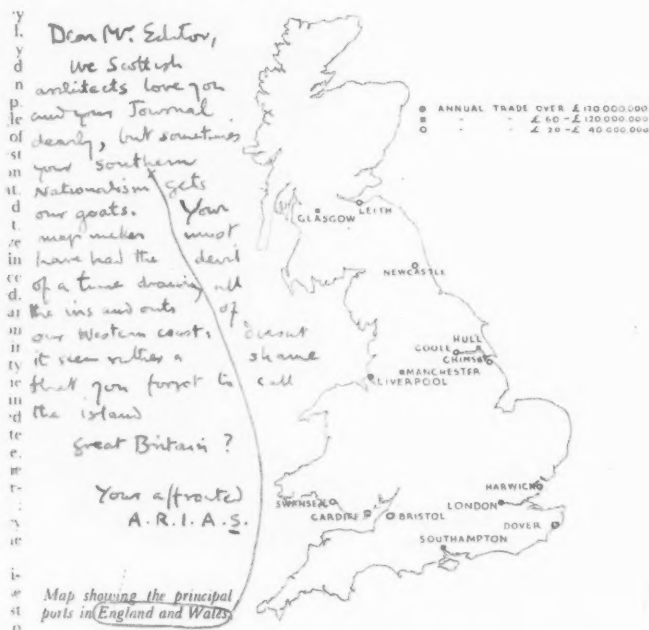 Dear Mr. Editor,
We Scottish
architects love you
and your Journal
dearly, but sometimes
your southern
Nationalism gets
our goats. Your
map maker must
have had the devil
of a time drawing all
the ins and outs of
our Western coast. doesnt
it seem rather a shame
that you forget to call
the island
Great Britain?
Your affronted
A.R.I.A.S.
Map showing the principal
ports in England and Wales.
ANNUAL TRADE OVER £120.000.000
- - £60-£120.000.000
- - £20-£40.000.000
GLASGOW
LEITH
NEWCASTLE
HULL
GOOLE
GRIMSBY
MANCHESTER
LIVERPOOL
HARWICH
SWANSEA
CARDIFF
BRISTOL
LONDON
DOVER
SOUTHAMPTON